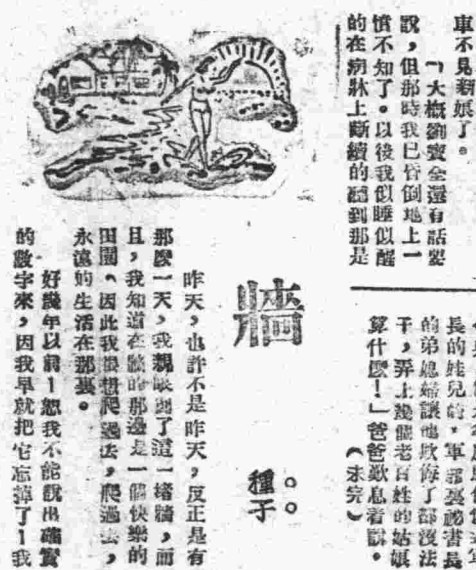 車不見新娘了。
「大概劉寶全還有話要
說,但那時我已昏倒地上一
慣不知了。以後我似睡似醒
的在病牀上斷續的聽到那是
長的娃兒,軍部裏祕書長
的弟媳婦讓他欺侮了都沒法
干,弄上幾個老百姓的姑娘
算什麼!」爸爸歎息着說。
(未完)
牆
種子
昨天,也許不是昨天,反正是有
那麼一天,我親眼到了這一堵牆,而
且,我知道在牆的那邊是一個快樂的
田園。因此我很想爬過去,爬過去,
永遠的生活在那裏。
好幾年以前!恕我不能說出確實
的數字來,因我早就把它忘掉了!我